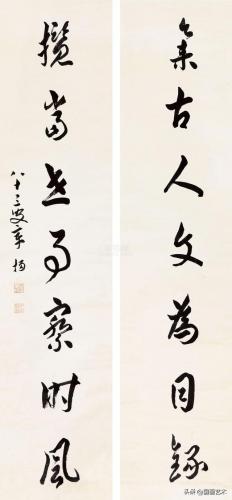 集古人文為目錄
攬當世事察时風
八十三叟章梫
头条 @国画艺术